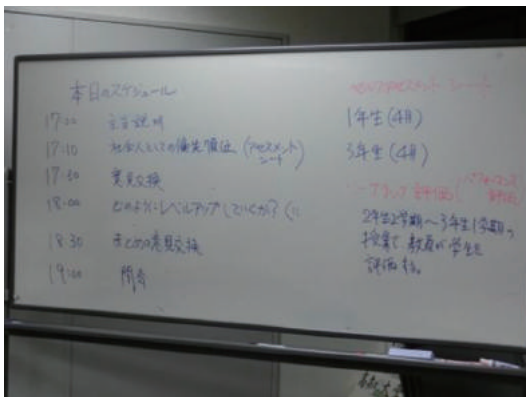 本日のスケジュール
17:00
17:10 社会人としての優先順位 (アセスメントシート)
17:30 意見交換
18:00 どのようにレベルアップしていくか? (
18:30 まとめの意見交換
19:00 閉会
アセスメント シート
1年生 (4月)
3年生 (4月)
評価 (パフォーマンス評価)
2年生2学期~3年生1学期の
授業で、教員が学生を
評価する。